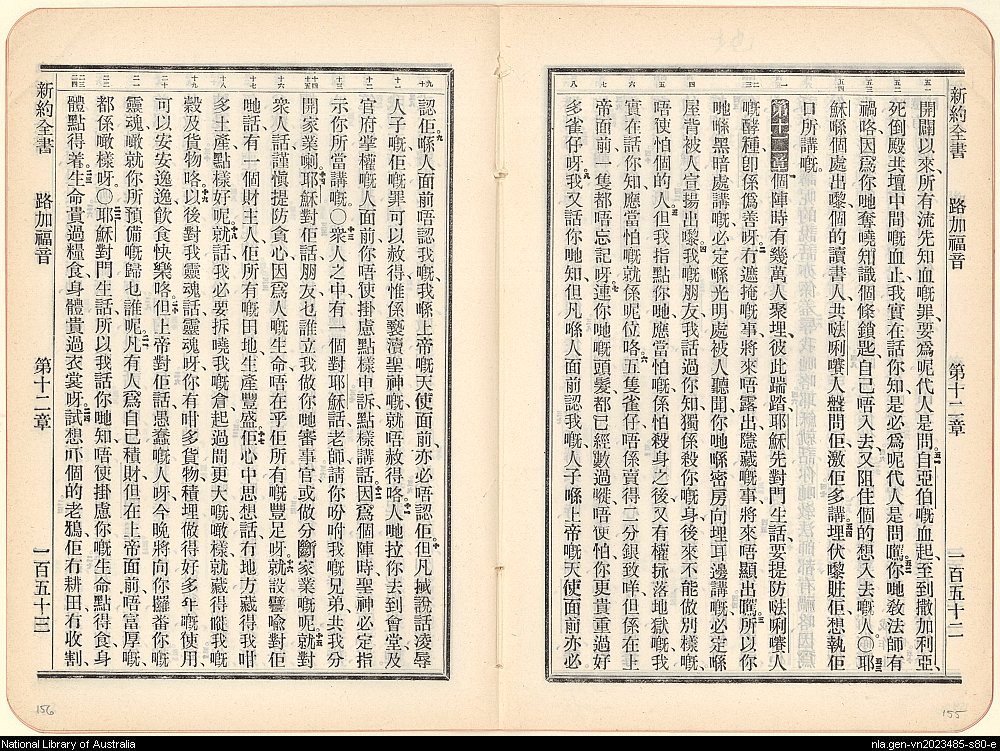 新約全書 路加福音 第十二章 一百五十二
開闢以來、所有流先知血嘅罪、要爲呢代人是問、自亞伯嘅血起、至到撒加利亞、
死倒殿共壇中間嘅血止、我實在話你知、是必爲呢代人是問嘅。你哋敎法師有
禍咯、因爲你哋奪曉知識個條鎖匙、自己唔入去、又阻住個的想入去嘅人。〇耶
穌喺個處出嚟、個的讀書人、共𠵽唎嚊人、盤問佢、激佢多講、埋伏嚟賍佢、想執佢
口所講嘅。
第十二章 個陣時有幾萬人聚埋、彼此踹踏、耶穌先對門生話、要提防𠵽唎嚊人
嘅酵種、卽係僞善呀。冇遮掩嘅事、將來唔露出、隱藏嘅事、將來唔顯出嘅。所以你
哋喺黑暗處講嘅、必定喺光明處被人聽聞、你哋喺密房向埋耳邊講嘅、必定喺
屋背被人宣揚出嚟。我嘅朋友、我話過你知、獨係殺你嘅身、後來不能做別樣嘅、
唔使怕個的人。但我指點你哋應當怕嘅、係怕殺身之後、又有權𢫏落地獄嘅、我
實在話你知、應當怕嘅、就係呢位咯。五隻雀仔、唔係賣得二分銀致咩、但係在上
帝面前、一隻都唔忘記呀。連你哋嘅頭髮都已經數過嘥、唔使怕、你更貴重過好
多雀仔呀。我又話你哋知、但凡喺人面前認我嘅、人子喺上帝嘅天使面前亦必
認佢。喺人面前唔認我嘅、我喺上帝嘅天使面前、亦必唔認佢。但凡㨘說話凌辱
人子嘅、佢嘅罪可以赦得、惟係褻瀆聖神嘅、就唔赦得咯。人哋拉你去到會堂、及
官府掌權嘅人面前、你唔使掛慮點樣申訴、點樣講話、因爲個陣時、聖神必定指
示你所當講嘅。〇衆人之中有一個對耶穌話、老師、請你吩咐我嘅兄弟共我分
開家業喇。耶穌對佢話、朋友乜誰立我做你哋審事官、或做分斷家業嘅呢。就對
衆人話、謹愼提防貪心、因爲人嘅生命、唔在乎佢所有嘅豐足呀。就設譬喻對佢
哋話、有一個財主人、佢所有嘅田地、生產豐盛、佢心中思想話、有地方藏得我咁
多土產、點樣好呢。就話、我必要拆曉我嘅倉、起過間更大嘅、噉樣就藏得嘥我嘅
穀及貨物咯。以後對我靈魂話、靈魂呀、你有咁多貨物積埋、做得好多年嘅使用、
可以安安逸逸飲食快樂咯。但上帝對佢話、愚蠢嘅人呀、今晚將向你攞番你嘅
靈魂、噉就你所預備嘅、歸乜誰呢。凡有人爲自己積財、但在上帝面前唔富厚嘅、
都係噉樣呀。〇耶穌對門生話、所以我話你哋知、唔使掛慮你嘅生命、點得食、身
體點得着。生命貴過糧食、身體貴過衣裳呀。試想吓個的老鴉、佢冇耕田、冇收割、
新約全書 路加福音 第十二章 一百五十三
156
155
National Library of Australia
nla.gen-vn2023485-s80-e